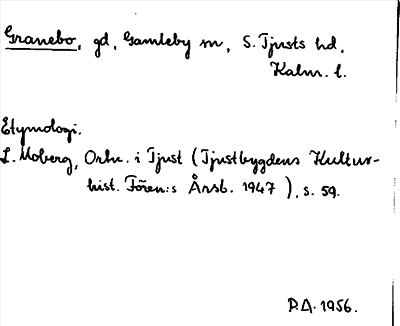 Granebo, gd, Gamleby sn, S. Tjusts hd,
Kalm. l.
Etymologi.
L. Moberg, Ortn. i Tjust (Tjustbygdens Kultur-
hist. Fören:s Årsb. 1947), s. 59.
P.A. 1956.